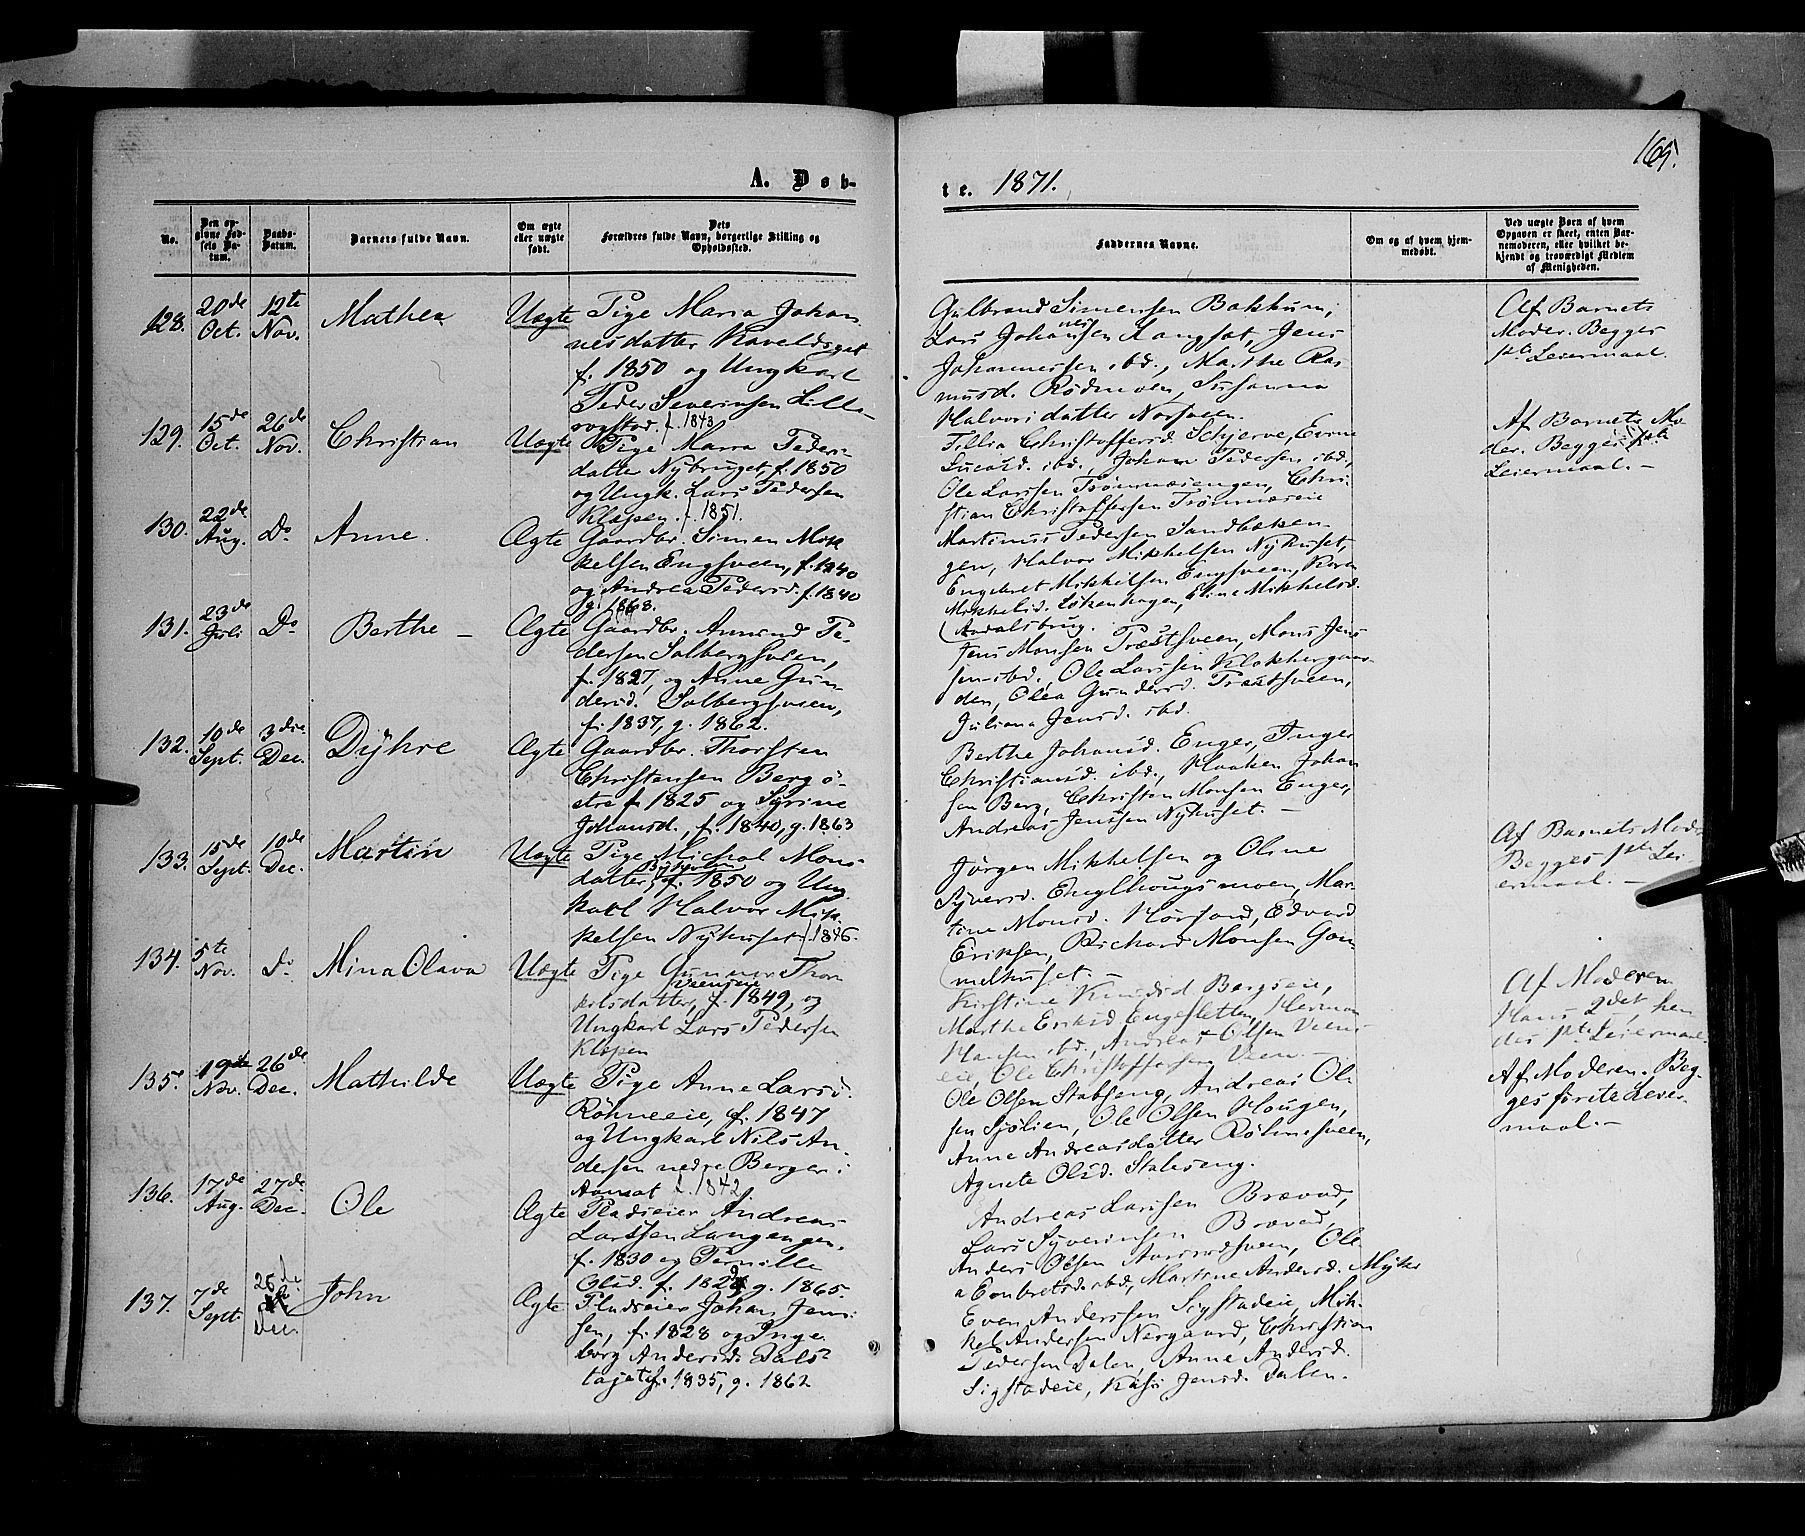 165.
A. Døb-
te. 1871.
No.
Den op-
givne Fød-
sels Da-
tum.
Daabs-
Datum.
Barnets fulde Navn.
Om ægte
eller uægte
født.
Dets
Forældres fulde Navn, borgerlige Stilling og
Opholdssted.
Faddernes Navne.
Om og af hvem hjem-
medøbt.
Ved uægte Børn af hvem
Opgaven er skeet, enten Bar-
nemoderen, eller hvilket be-
kjendt og troværdigt Medlem
af Menigheden.
128.
20de
Oct.
12te
Nov.
Mathea
Uægte
Pige Maria Johan
nesdatter
f. 1850 og Ungkarl
Peder Severinsen Lille-
f. 1843
Gulbrand Simensen Bakkum,
nes
Lars Johansen Langsæt, Jens
Johannessen ibd., Marthe Ras
musd. Rødmoen, Susanna
Halvorsdatter Norsveen.
Af Barnets
Moder. Begges
1ste Leiermaal.
129.
15de
Oct.
26de
Nov.
Christian
Uægte
Pige Maria Peders
datter Nybruget, f. 1850
og Ungk. Lars Pedersen
Klæpen. f. 1851.
Tellia Christoffersd. Schjerve, Evine
Lucasd. ibd., Johan Pedersen ibd.,
Ole Larssen Trønnæsengen, Chri
stian Christoffersen Trønnæseie
Af Barnets Mo
der. Begges 1ste
Leiermaal. -
130.
22de
Aug.
Do
Anne.
Ægte
Gaardbr. Simen Mik
kelsen Engsveen, f. 1840
og Andrea Pedersd. f. 1840
g. 1863.
Martinus Pedersen Sandbaken-
gen, Halvor Mikkelsen Nyhuset,
Engebret Mikkelsen Engsveen, Karen
Mikkelsd. Løkenhagen, Eline Mikkelsd.
Aadalsbrug.
131.
23de
Juli
Do
Berthe -
Ægte
Gaardbr. Amund Pe-
dersen Solbergsveen,
f. 1827, og Anne Gun-
dersd. Solbergsveen,
f. 1837, g. 1862.
Jens Monsen Præstsveen, Mons Jens
sen ibd., Ole Larssen Klokkergaar-
den, Olea Gundersd. Præstsveen,
Juliana Jensd. ibd.
132.
10de
Sept.
3die
Dec.
Dyhre
Ægte
Gaardbr. Thorsten
Christensen Berg ø-
stre f. 1825 og Syrine
Johansd., f. 1840, g. 1863
Berthe Johansd. Enger, Inger
Christiansd. ibd., Haaken Johan
sen Berg, Christen Monsen Enger,
Andreas Jenssen Nyhuset. -
133.
15de
Sept.
10de
Dec.
Martin
Uægte
Pige Michal Mons
datter, f. 1850 og Ung
karl Halvor Mik
kelsen Nyhuset f. 1846.
Jørgen Mikkelsen og Oline
Syversd. Englhougsmoen, Mar
tine Monsd. Horsand, Edvard
Eriksen, Richard Monsen Gam
melhuset. -
Af Barnets Moder
Begges 1ste Lei
ermaal. -
134.
5te
Nov.
Do
Mina Olava
Uægte
Pige Gunner Thor
kilsdatter, f. 1849, og
Ungkarl Lars Pedersen
Klæpen
Kirstine Knudsd Bergseie,
Marthe Eriksd Engesletten, Herman
Hansen ibd., Andreas Olsen Veen-
eie, Ole Christoffersen Veen. -
Af Moderen
Hans 2det, hen
des 1ste Leiermaal.
135.
19de
Nov.
26de
Dec.
Mathilde
Uægte
Pige Anne Larsd.
Røhneeie, f. 1847
og Ungkarl Nils An-
dersen nedre Berger i
Aamot f. 1842
Ole Olsen Stabseng, Andreas Ol
sen Sjølien, Ole Olsen Hougen,
Anne Andreasdatter Røhnesveen,
Agnete Olsd. Stabseng.
Af Moderen. Beg
ges første Leier-
maal. -
136.
17de
Aug.
27de
Dec.
Ole
Ægte
Pladseier Andreas
Larssen Langengen.
f. 1830 og Pernille
Olsd. f. g. 1865.
Andreas Larssen Brævad,
Lars Syverinsen Brævad,
Anders Olsen, Ole
Engebretsd ibd, Martine Andersd.
137.
7de
Sept.
26de
Dec.
John
Ægte
Pladseier Johan Jens
sen, f. 1828 og Inge
borg Andersd. Dals
f. 1835, g. 1862
Even Anderssen Sigstadeie, Mik-
kel Andersen Nergaard, Christian
Pedersen Dalen, Anne Andersd.
Sigstadeie, Kari Jensd. Dalen.